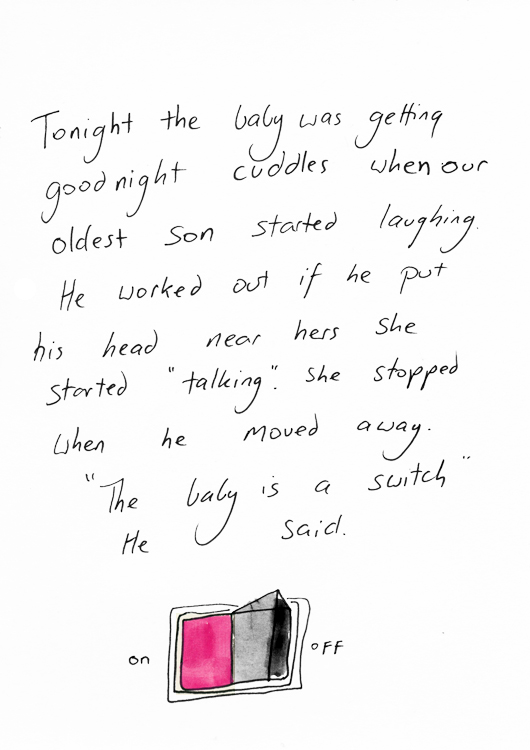 Tonight the baby was getting
goodnight cuddles when our
oldest son started laughing.
He worked out if he put
his head near hers she
started "talking". she stopped
when he moved away.
"The baby is a switch"
He said.
on OFF